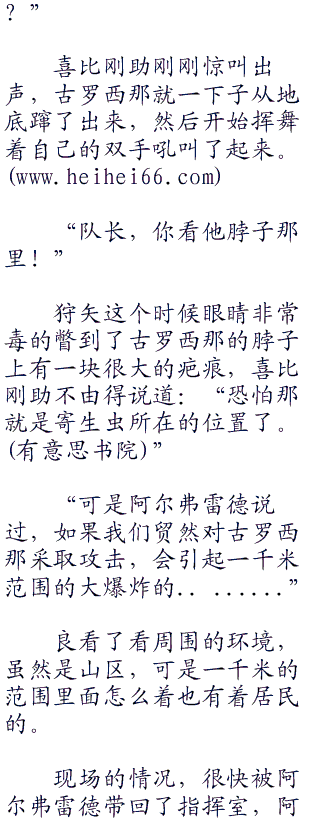 ？”
喜比刚助刚刚惊叫出
声，古罗西那就一下子从地
底蹿了出来，然后开始挥舞
着自己的双手吼叫了起来。
(www.heihei66.com)
“队长，你看他脖子那
里！”
狩矢这个时候眼睛非常
毒的瞥到了古罗西那的脖子
上有一块很大的疤痕，喜比
刚助不由得说道：“恐怕那
就是寄生虫所在的位置了。
(有意思书院)”
“可是阿尔弗雷德说
过，如果我们贸然对古罗西
那采取攻击，会引起一千米
范围的大爆炸的.. ......”
良看了看周围的环境，
虽然是山区，可是一千米的
范围里面怎么着也有着居民
的。
现场的情况，很快被阿
尔弗雷德带回了指挥室，阿